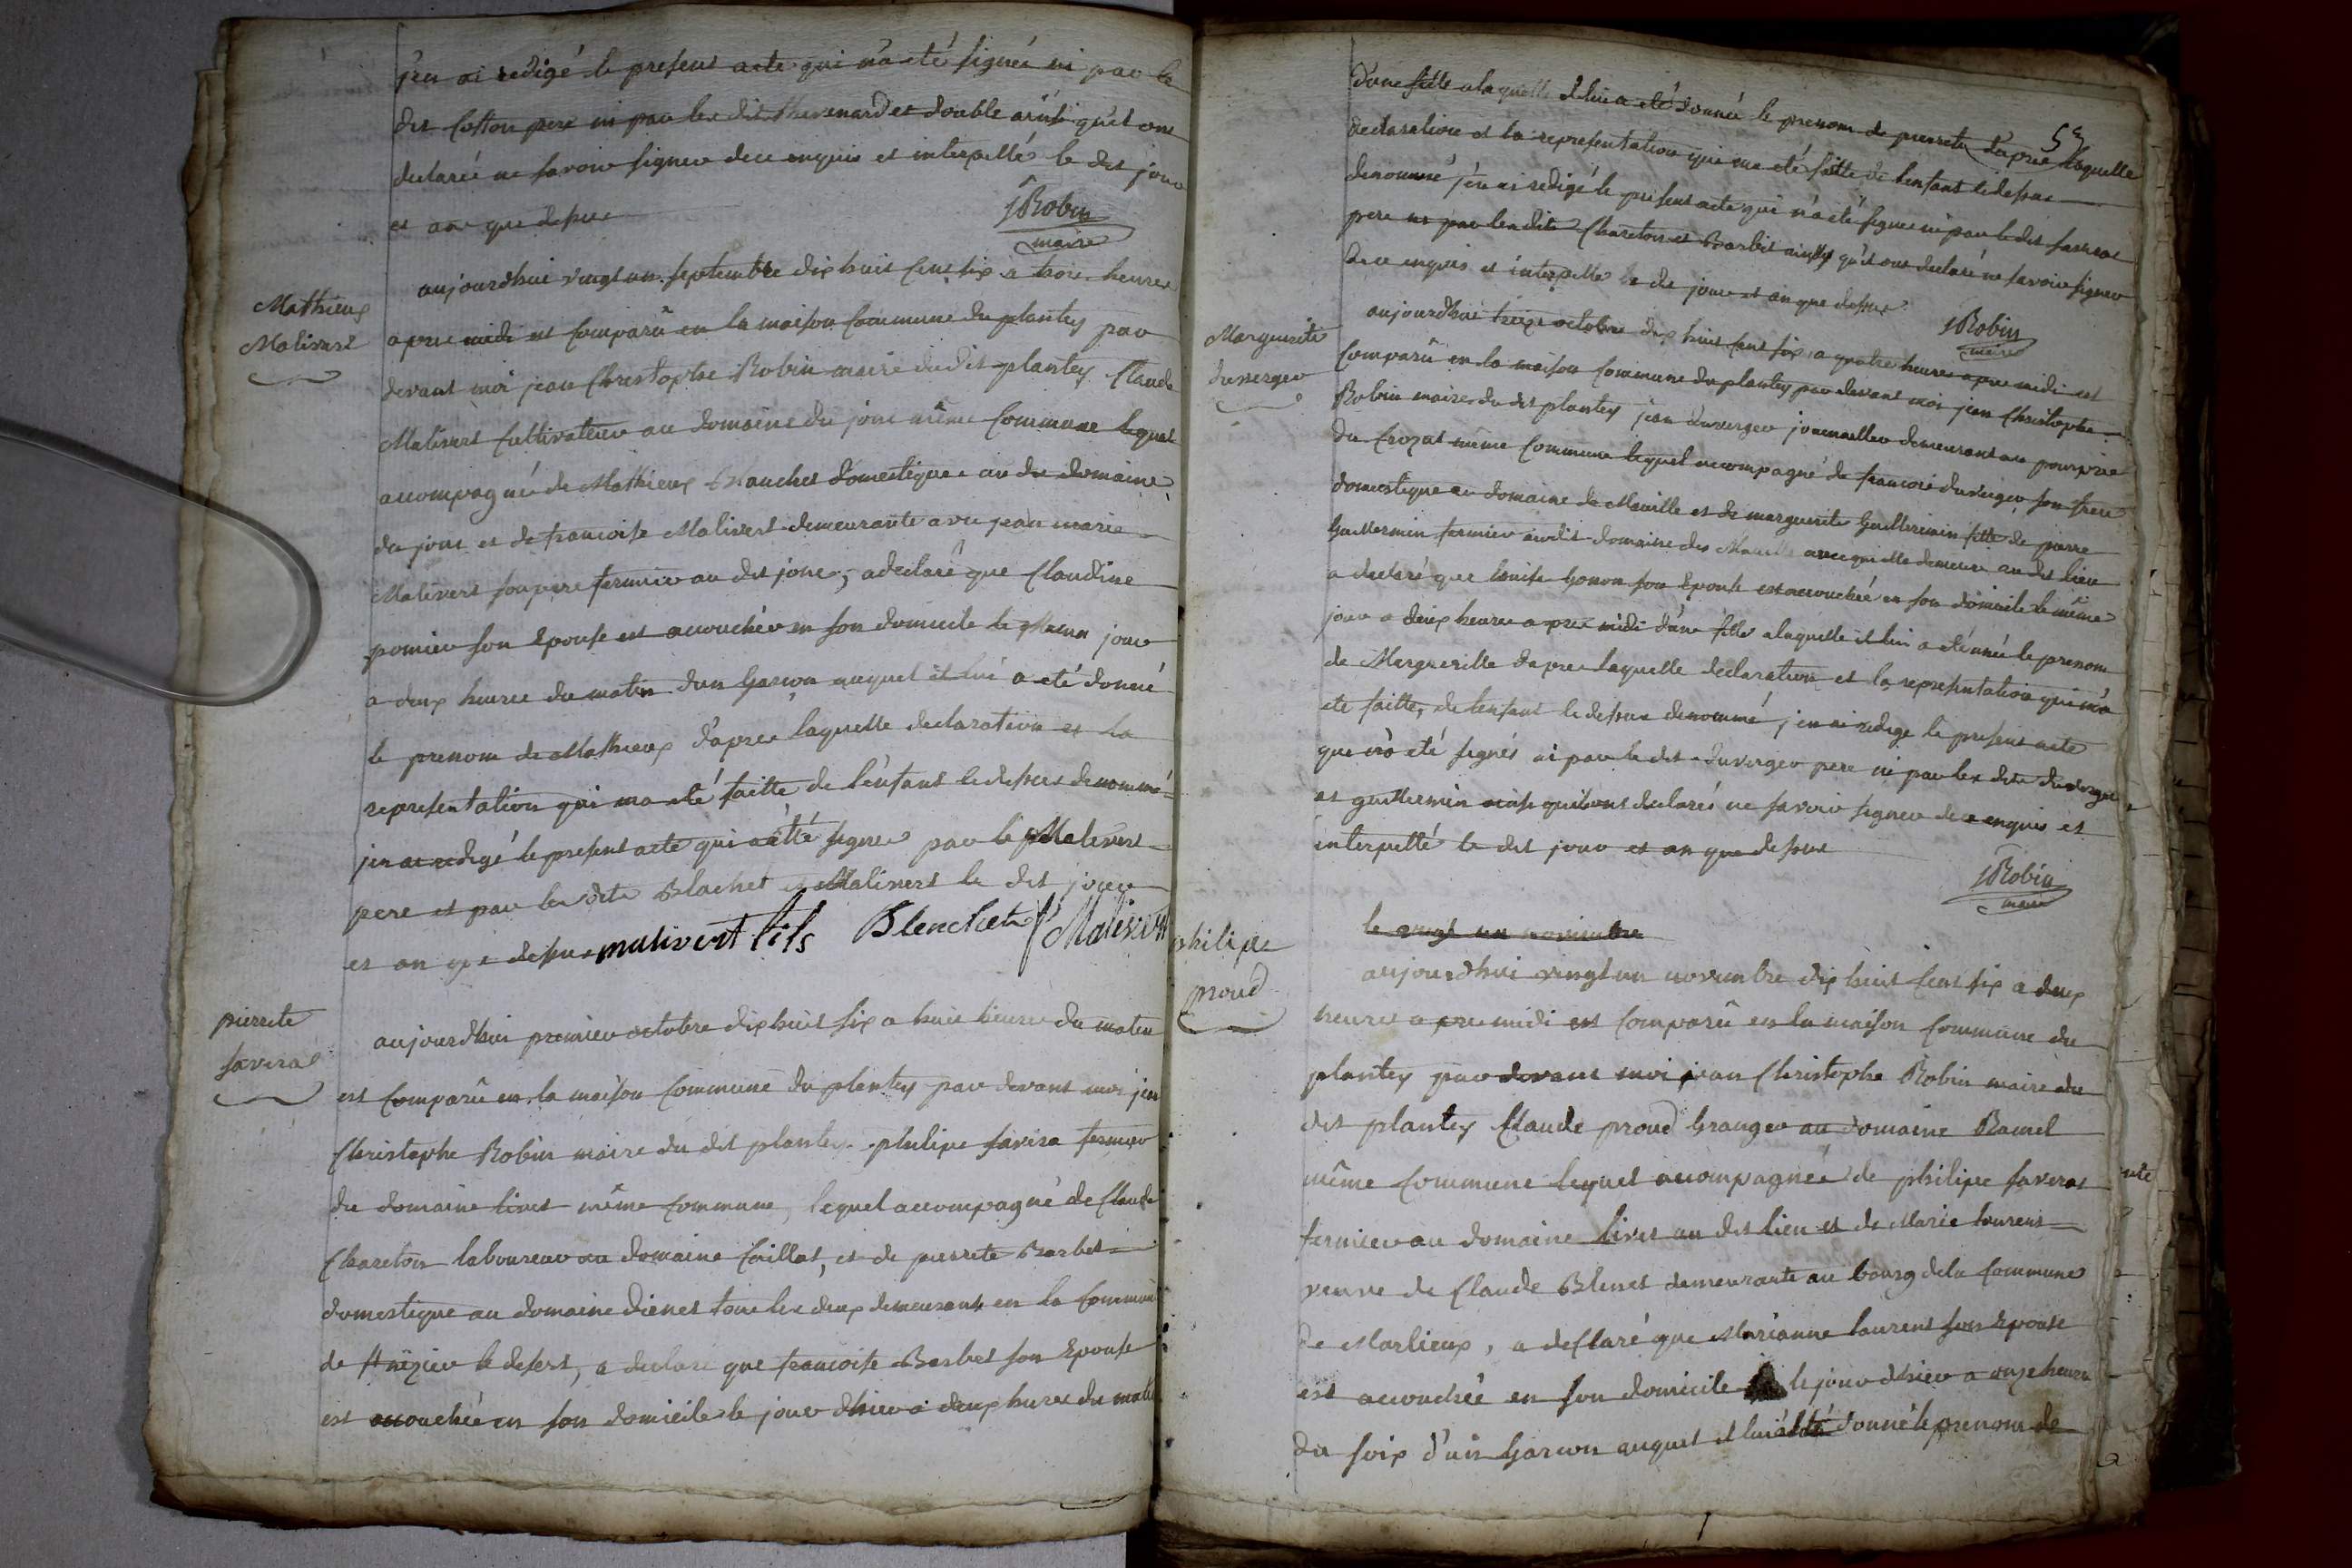 j'en ai redigé le present acte qui n'a eté signé ni par le
dit Cotton pere ni par les dits Thevenard et double ainsi qu'il ont
declaré ne savoir signer de ce enquis et interpellé le dit jour
et an que dessus
JRobin
maire
Mathieux
Malivert
aujourdhui vingt un septembre dix huit Cent six a trois heures
apres midi est Comparû en la maison Commune du plantey par
devant moi jean Christophe Robin maire du dit plantey Claude
Malivert Cultivateur au domaine du jonc même Commune lequel
accompagné de Mathieux Blanchet domestique au dit domaine
du jonc et de francoise Malivert demeurante avec jean marie
Malivert son pere fermier au dit jonc, a declaré que Claudine
pomier son Epouse est accouchée en son domicile le même jour
a deux heures du matin d'un Garcon auquel il lui a eté donné
le prenom de Mathieux d'apres laquelle declaration et la
representation qui ma eté faitte de l'enfant ci dessus denommé
jen ai redigé le present acte qui a été signé par le Malivert
pere et par les dits Blachet et Malivert le dit jour
et an que dessus malivert fils Blenchet Malivert
pierrete
faverat
aujourdhui premier octobre dix huit six a huit heures du matin
est Comparû en la maison Commune du plantey par devant moi jean
Christophe Robin maire du dit plantey philipe favera fermier
du domaine livet même Commune, lequel accompagné de Claude
Chareton laboureur au domaine Caillat, et de pierrete Barbet
domestique au domaine dienet tous les deux demeurant en la Commune
de St nizier le desert, a declaré que francoise Barbet son Epouse
est accouchée en son domicile le jour d'hier a deux heures du matin
5e
d'une fille a laquelle il lui a eté donné le prenom de pierrete d'apres laquelle
declaration et la representation qui ma eté faitte de lenfant ci dessus
denommé j'en ai redigé le present acte qui n'a eté signé ni par le dit faverat
pere ni par les dits Chareton et Barbet ainsi qu'il ont declaré ne savoir signer
de ce enquis et interpellé le dit jour et an que dessus
JRobin
maire
Marguerite
duverger
aujourdhui treize octobre dix huit cent six a quatre heures apres midi est
Comparû en la maison Commune du plantey par devant moi jean Christophe
Robin maire du dit plantey jean duverger journallier demeurant au pourprix
du Crozat même Commune lequel accompagné de francois duverger son frere
domestique au domaine de Maville et de marguerite Guillermin fille de pierre
Guillermin fermier audit domaine des avec qui elle demeure au dit lieu
a declaré que louise Gonon son Epouse est accouchée en son domicile le même
jour a deux heures apres midi d'une fille a laquelle il lui a eté donné le prenom
de Marguerille dapres laquelle declaration et la representation qui m'a
eté faitte, de l'enfant ci dessus denommé, jen ai redigé le present acte
qui n'a eté signé ni par le dit duverger pere ni par les dits duverger
et guillermin ainsi qu'ils ont declaré ne savoir signer de ce enquis et
interpellé le dit jour et an que dessus
JRobin
maire
le vingt un novembre
philipe
proud
aujourdhui vingt un novembre dix huit Cent six a deux
heures apres midi est Comparû en la maison Commune du
plantey par devant moi jean Christophe Robin maire du
dit plantey Claude proud Granger au domaine Ramel
même Commune lequel accompagné de philipe faverat
fermier au domaine livet au dit lieu et de Marie laurent
veuve de Claude Blenet demeurante au bourg de la Commune
de Marlieux, a declaré que Marianne laurent son Epouse
est accouchée en son domicile le jour d'hier a onze heures
du soir d'un Garcon auquel il lui a été donné le prenom de